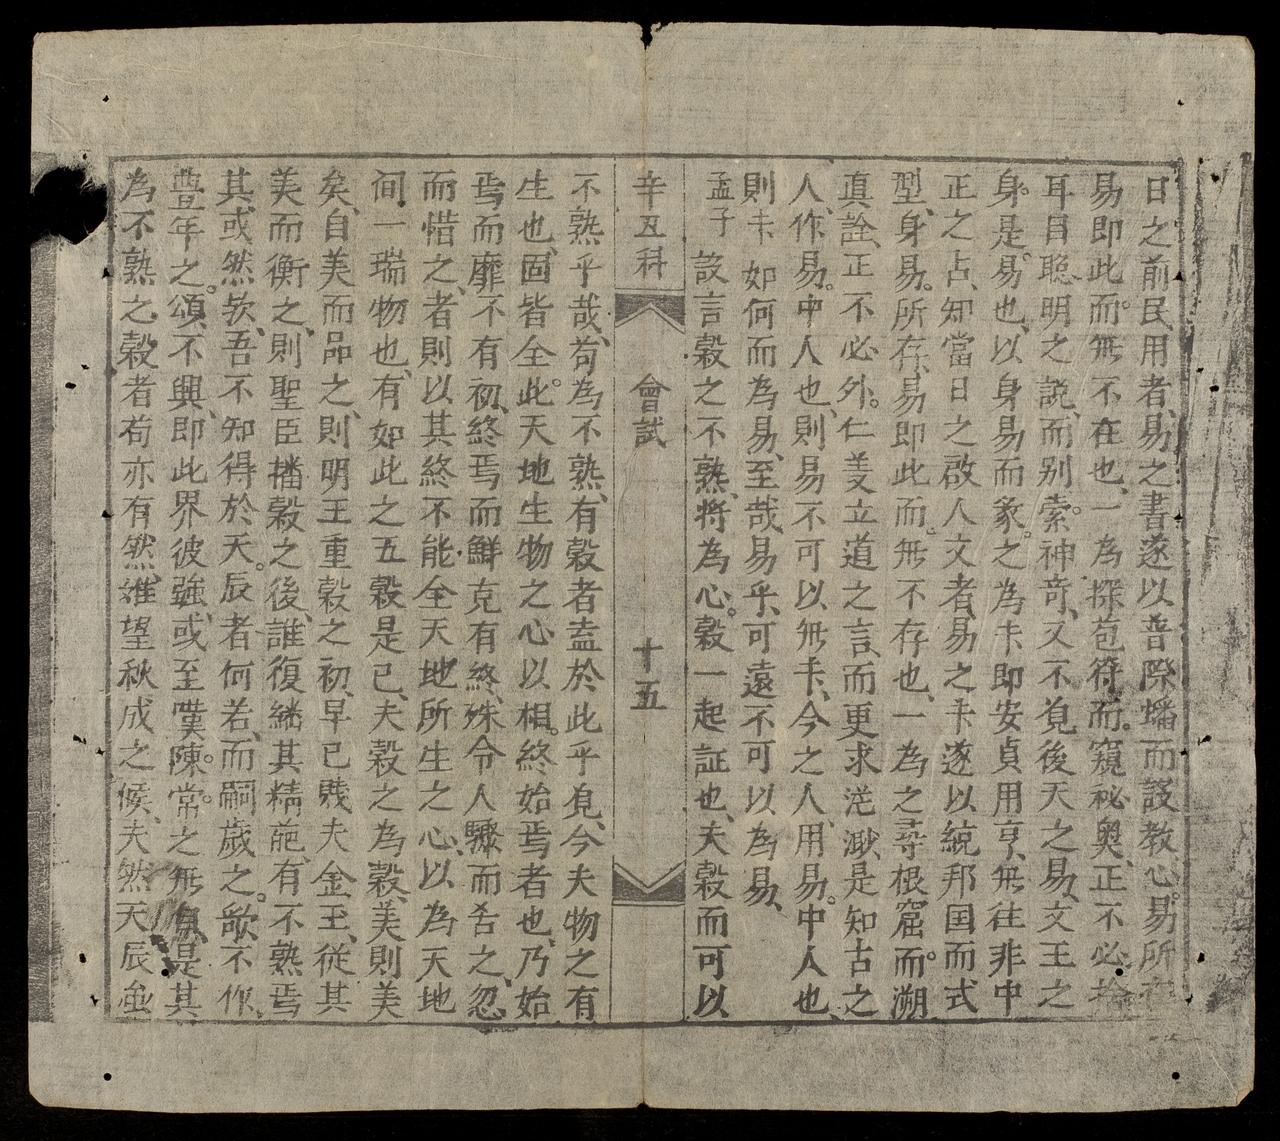 日之前民、用者、易之書遂以普際蟠而設教心。易所在
易即此而。無不在也、一為探苞符而。窺秘奥、正不必捨
耳目聡明之説、而别索。神竒、又不覓後天之易、文王之
身。是易也、以身易而象。之為卡即安貞用亨、無往非中
正之占、知當日之啟人文者、易之卡遂以統邦国而式
型、身易。所存、易即此而。無不存也、一為之尋根窟而。溯
真詮、正不必外。仁義立道之言、而更求茫渺、是知古之
人、作易。中人也、則易不可以無卡、今之人、用易。中人也、
則卡如何而為易、至哉易乎、可遠不可以為易、
孟子 設言穀之不熟、将為心。穀一起証也、夫穀而可以
辛丑科 會試 十五
不熟乎哉、苟為不熟、有穀者盍於此乎覓、今夫物之有
生也、固皆全此。天地生物之心以相。終始焉者也、乃始
焉而靡不有初、終焉而鮮克有終、殊令人驟而舍之、忽
而惜之、者則以其終不能全天地所生之心、以為天地
间一瑞物也、有如此之五穀是已、夫穀之為穀、美則美
矣、自美而品之、則明王重穀之初、早已賤夫金玉、従其
美而衡之、則聖臣播穀之後、誰復繙其精葩、有不熟焉
其、或然欤、吾不知得於天。辰者何若、而嗣歲之。欿不作、
豊年之。頌、不興、即此界彼強、或至嘆陳。常之無、是其
為不熟之穀者苟亦有然、維望秋成之候、夫然天辰垂